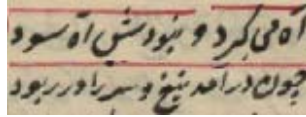 آه می کرد و نبودش آه سود
چون درآمد تیغ و سر را در ربود